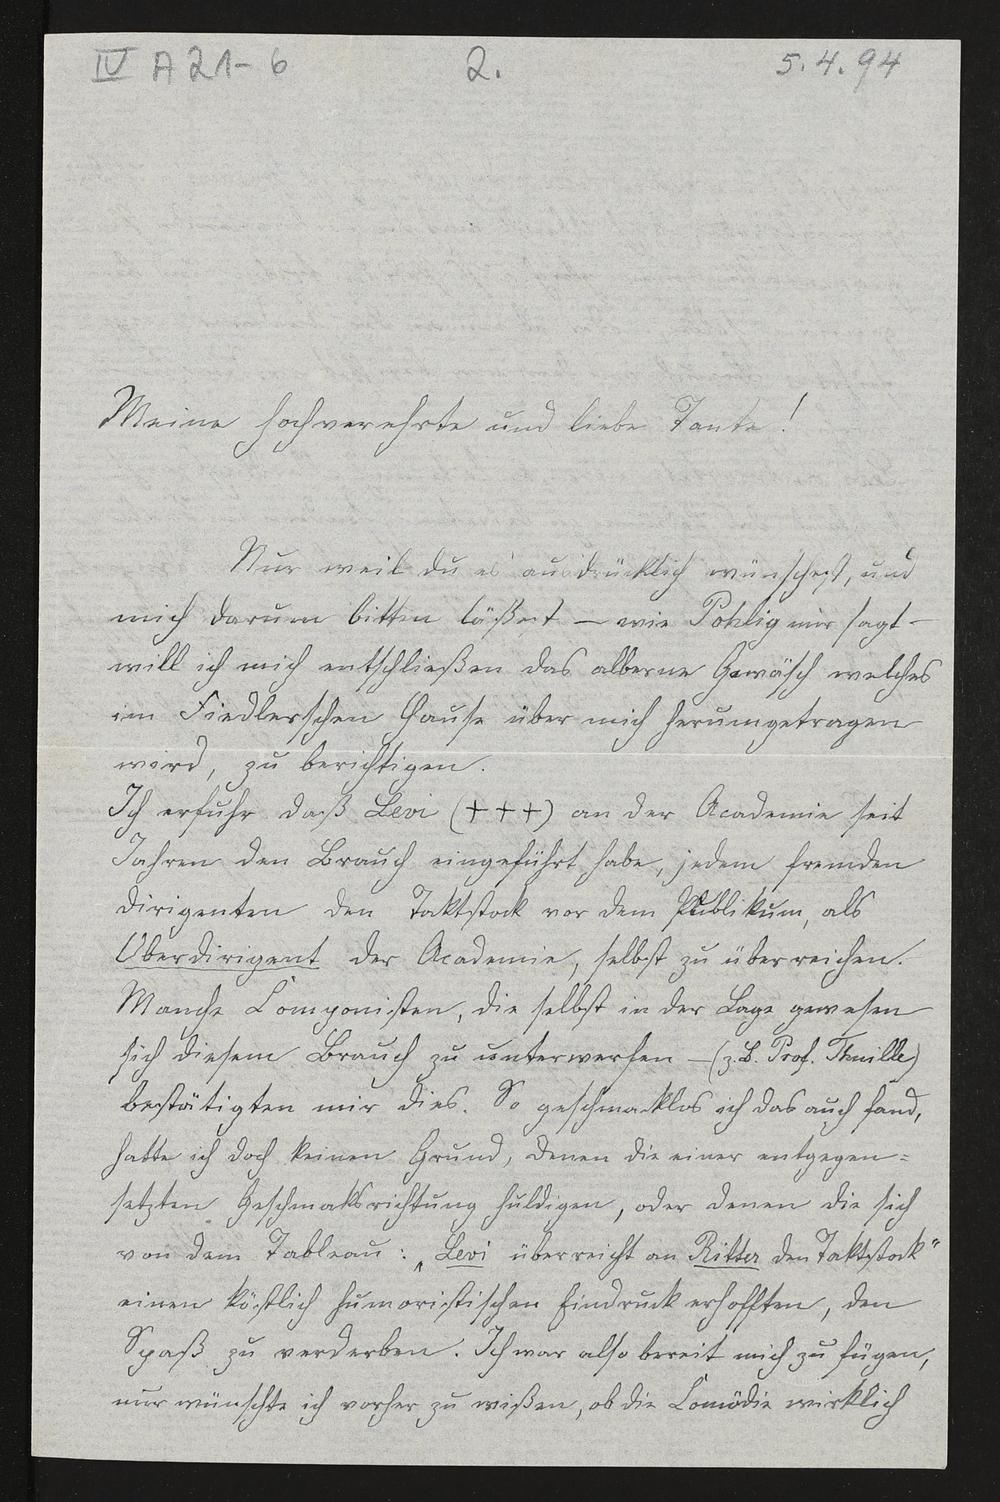 IV A 21-6 2. 5.4.94
Meine hochverehrte und liebe Tante!
Nur weil du es ausdrücklich wünschest, und
mich darum bitten läßest – wie Pohlig mir sagt –
will ich mich entschließen das alberne Gewäsch welches
im Fiedlerschen Hause über mich herumgetragen
wird, zu berichtigen.
Ich erfuhr daß Levi (+++) an der Academie seit
Jahren den Brauch eingeführt habe, jedem fremden
Dirigenten den Taktstock vor dem Publikum, als
Oberdirigent der Academie, selbst zu überreichen.
Manche Componisten, die selbst in der Lage gewesen
sich diesem Brauch zu unterwerfen – (z.B. Prof. Thuille)
bestätigten mir dies. So geschmacklos ich das auch fand,
hatte ich doch keinen Grund, denen die einer entgegen=
setzten Geschmaksrichtung huldigen, oder denen die sich
von dem Tableau: „Levi überreicht an Ritter den Taktstock"
einen köstlich humoristischen Eindruck erhofften, den
Spaß zu verderben. Ich war also bereit mich zu fügen,
nur wünschte ich vorher zu wißen, ob die Comödie wirklich